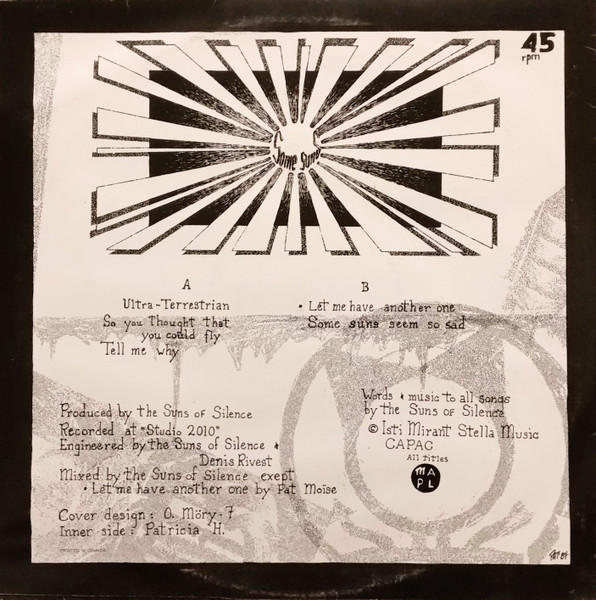 45
rpm
Some Suns
A
Ultra-Terrestrian
So you Thought that
you could fly
Tell me why
B
• Let me have another one
Some suns seem so sad
Produced by the Suns of Silence
Recorded at "Studio 2010"
Engineered by the Suns of Silence &
Denis Rivest
Mixed by the Suns of Silence exept
• Let me have another one by Pat Moïse
Cover design : O. Möry-7
Inner side : Patricia H.
PRINTED IN CANADA
Words & music to all songs
by the Suns of Silence
© Isti Mirant Stella Music
CAPAC
All titles
MA
PL